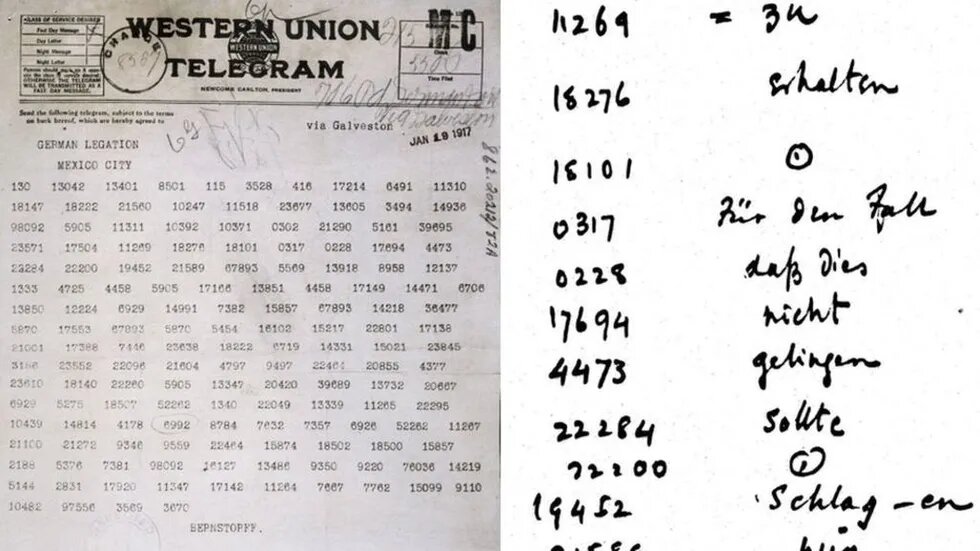 CLASS OF SERVICE DESIRED
Fast Day Message
Day Letter
Night Message
Night Letter
Patrons should mark an X oppo-
site the class of service desired;
OTHERWISE THE TELEGRAM
WILL BE TRANSMITTED AS A
FAST DAY MESSAGE.
WESTERN UNION
TELEGRAM
WESTERN UNION
NEWCOMB CARLTON, PRESIDENT
Time Filed
CHARGE
Send the following telegram, subject to the terms
on back hereof, which are hereby agreed to
via Galveston
JAN 19 1917
GERMAN LEGATION
MEXICO CITY
130 13042 13401 8501 115 3528 416 17214 6491 11310
18147 18222 21560 10247 11518 23677 13605 3494 14936
98092 5905 11311 10392 10371 0302 21290 5161 39695
23571 17504 11269 18276 18101 0317 0228 17694 4473
23284 22200 19452 21589 67893 5569 13918 8958 12137
1333 4725 4458 5905 17166 13851 4458 17149 14471 6706
13850 12224 6929 14991 7382 15857 67893 14218 36477
5870 17553 67893 5870 5454 16102 15217 22801 17138
21001 17388 7446 23638 18222 6719 14331 15021 23845
3156 23552 22096 21604 4797 9497 22464 20855 4377
23610 18140 22260 5905 13347 20420 39689 13732 20667
6929 5275 18507 52262 1340 22049 13339 11265 22295
10439 14814 4178 6992 8784 7632 7357 6926 52262 11267
21100 21272 9346 9559 22464 15874 18502 18500 15857
2188 5376 7381 98092 16127 13486 9350 9220 76036 14219
5144 2831 17920 11347 17142 11264 7667 7762 15099 9110
10482 97556 3569 3670
BERNSTORFF.
11269 = zu
18276 erhalten
18101 ⊙
0317 Für den Fall
0228 daß dies
17694 nicht
4473 gelingen
22284 sollte
22200 ⊙
19452 Schlag-en